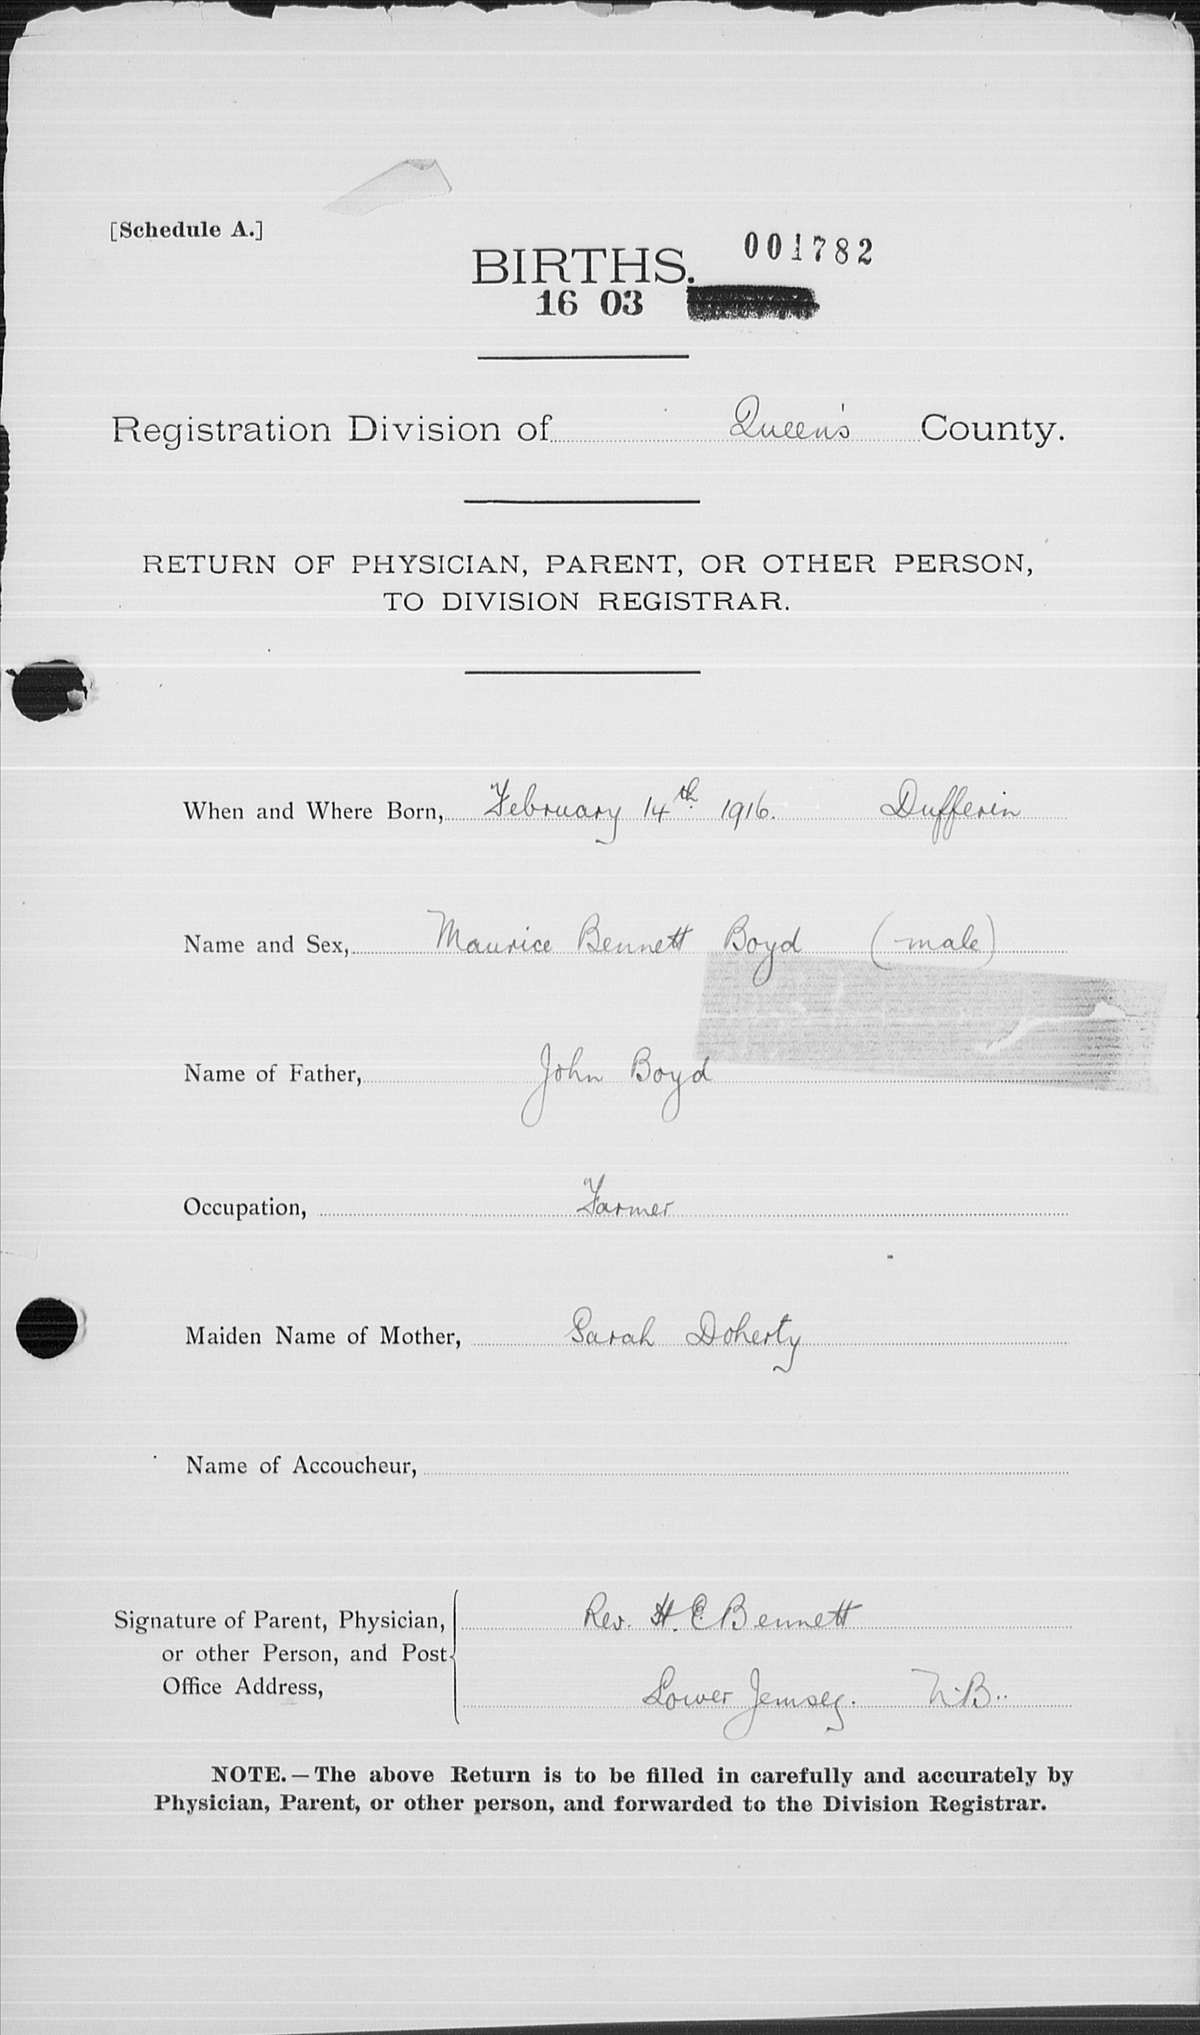 [Schedule A.]
001782
BIRTHS.
16 03
Registration Division of Queen's County.
RETURN OF PHYSICIAN, PARENT, OR OTHER PERSON,
TO DIVISION REGISTRAR.
When and Where Born, February 14th 1916. Dufferin
Name and Sex, Maurice Bennett Boyd (male)
Name of Father, John Boyd
Occupation, Farmer
Maiden Name of Mother, Sarah Doherty
Name of Accoucheur,
Signature of Parent, Physician, Rev. H. E. Bennett
or other Person, and Post
Office Address, Lower Jemseg. N.B.
NOTE.—The above Return is to be filled in carefully and accurately by
Physician, Parent, or other person, and forwarded to the Division Registrar.